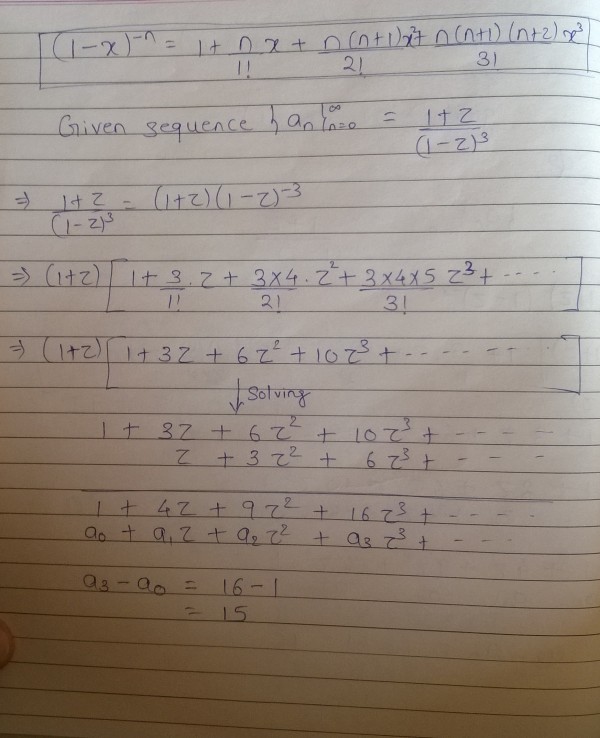 (1-x)⁻ⁿ = 1 + n/1! x + n(n+1)/2! x² + n(n+1)(n+2)/3! x³
Given sequence {aₙ}ₙ₌₀^∞ = (1+z)/(1-z)³
⇒ (1+z)/(1-z)³ = (1+z)(1-z)⁻³
⇒ (1+z) [1 + 3/1! . z + 3×4/2! . z² + 3×4×5/3! z³ + ....]
⇒ (1+z) [1 + 3z + 6z² + 10z³ + -------]
↓ Solving
1 + 3z + 6z² + 10z³ + ----
z + 3z² + 6z³ + ---
1 + 4z + 9z² + 16z³ + ----
a₀ + a₁z + a₂z² + a₃z³ + ---
a₃ - a₀ = 16 - 1
= 15